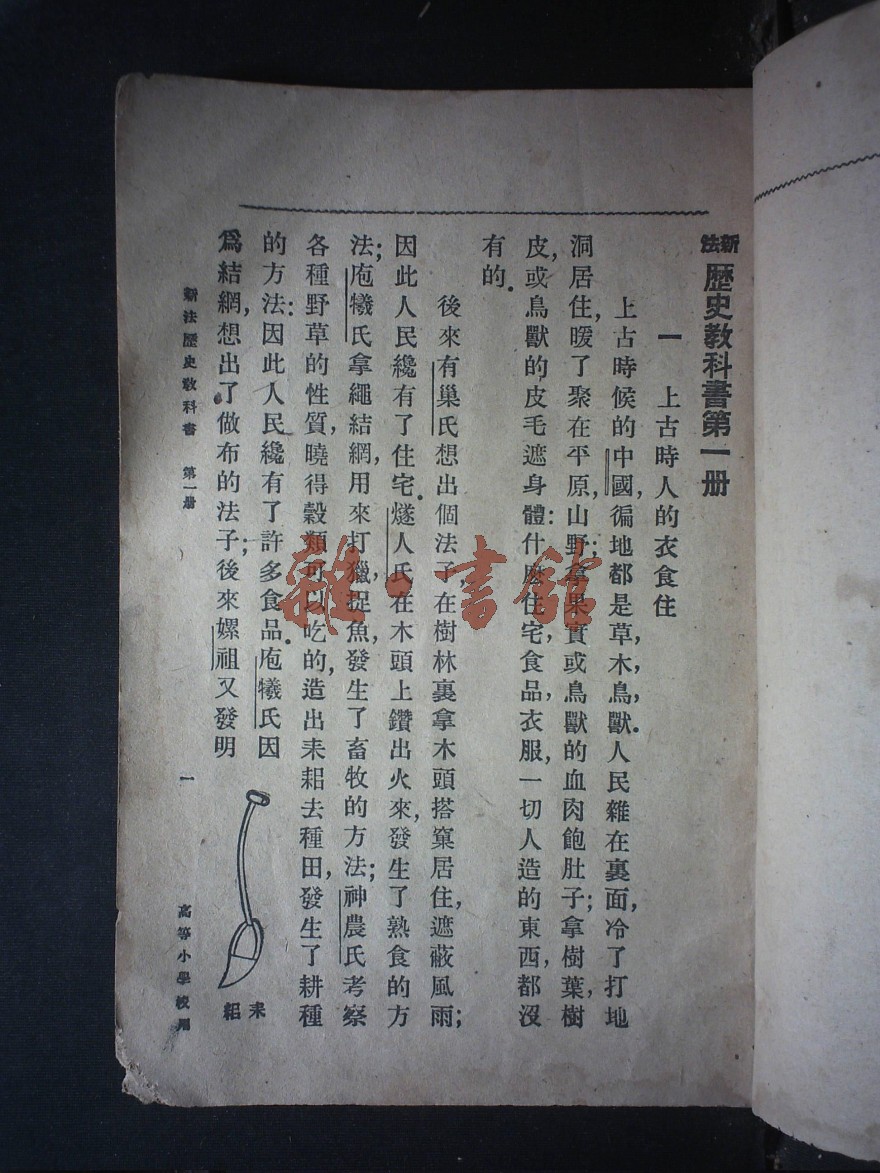 新法歷史教科書第一册
一　上古時人的衣食住
上古時候的中國,徧地都是草,木,鳥,獸.人民雜在裏面,冷了打地
洞居住,暖了聚在平原,山野;拿果實或鳥獸的血肉飽肚子;拿樹葉,樹
皮,或鳥獸的皮毛遮身體:什麽住宅,食品,衣服,一切人造的東西,都沒
有的.
後來有巢氏想出個法子,在樹林裏拿木頭搭窠居住,遮蔽風雨;
因此人民纔有了住宅.燧人氏在木頭上鑽出火來,發生了熟食的方
法;庖犧氏拿繩結網,用來打獵,捉魚,發生了畜牧的方法;神農氏考察
各種野草的性質,曉得穀類可以吃的,造出耒耜去種田,發生了耕種
的方法:因此人民纔有了許多食品.庖犧氏因
爲結網,想出了做布的法子;後來嫘祖又發明
耒耜
新法歷史教科書　第一册　一　高等小學校用
雜·書館